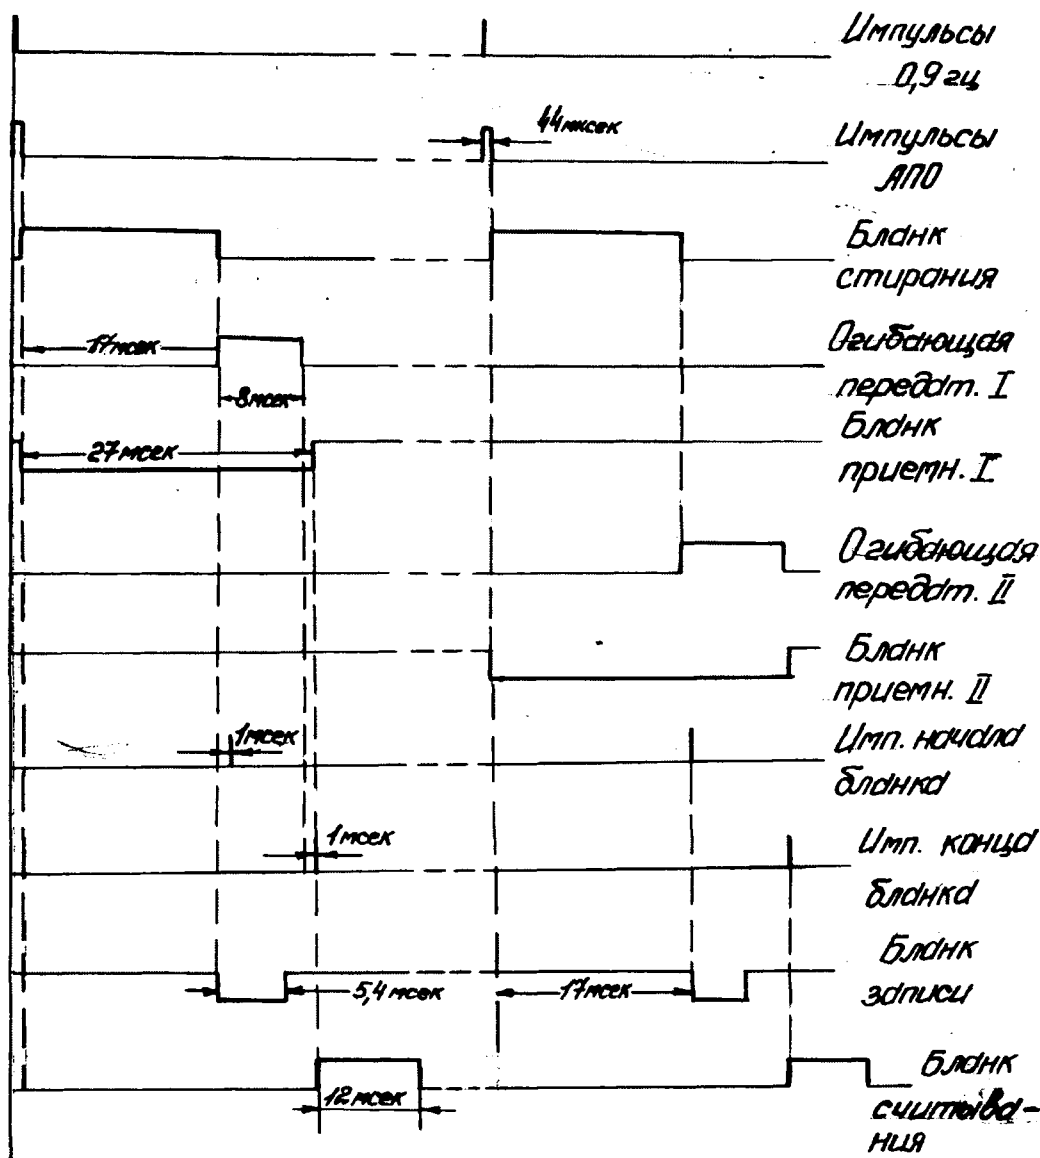 Импульсы
0,9 гц
44 мксек
Импульсы
АПО
Бланк
стирания
17 мсек
Огибающая
передат. I
8 мсек
27 мсек
Бланк
приемн. I
Огибающая
передат. II
Бланк
приемн. II
1 мсек
Имп. начала
бланка
1 мсек
Имп. конца
бланка
Бланк
записи
5,4 мсек
17 мсек
Бланк
считыва-
ния
12 мсек